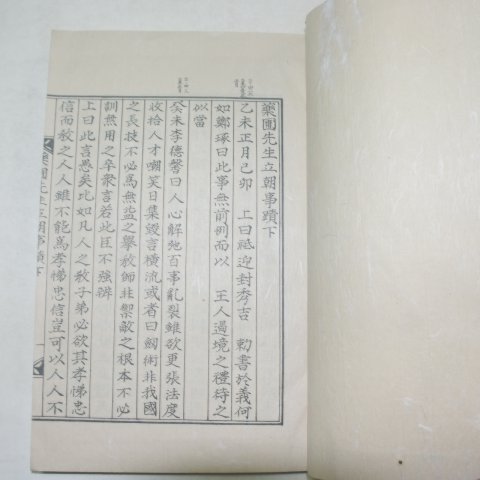 藥圃先生立朝事蹟下
乙未正月己卯 上曰祗迎封秀吉 勅書於義何
如鄭琢曰此事無前例而以 王人過境之禮待之
似當
癸未李德馨曰人心解弛百事亂裂雖欲更張法度
收拾人才嘲笑日集毁言橫流或者曰劒術非我國
之長技不必爲無益之擧敎師非禦敵之根本不必
訓無用之卒衆言若此臣不强辨
上曰此言悉矣比如凡人之敎子弟必欲其孝悌忠
信而敎之人人雖不能爲孝悌忠信豈可以人人不
藥圃先生立朝事蹟下 一